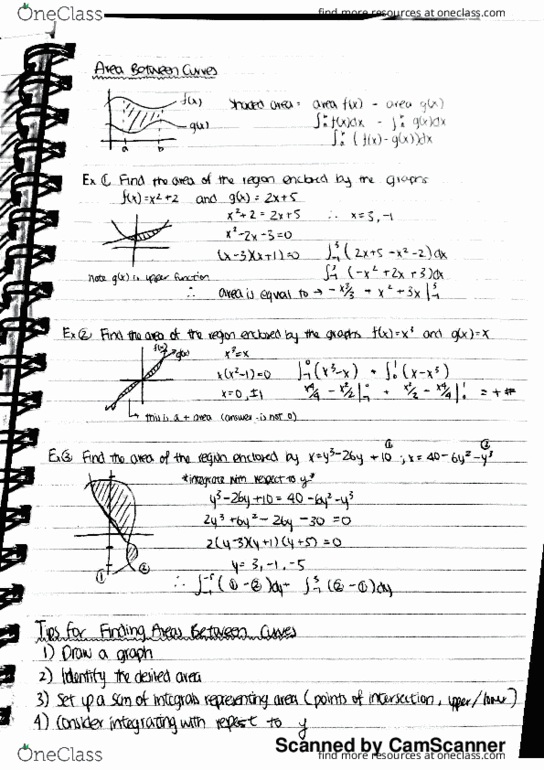 OneClass
find more resources at oneclass.com
Area Between Curves
f(x)
g(x)
a b
shaded area = area f(x) - area g(x)
∫ₐᵇ f(x)dx - ∫ₐᵇ g(x)dx
∫ₐᵇ (f(x)-g(x))dx
Ex ① Find the area of the region enclosed by the graphs
f(x)=x²+2 and g(x)=2x+5
x²+2 = 2x+5 ∴ x=3,-1
x²-2x-3=0
(x-3)(x+1)=0
∫₋₁³ (2x+5-x²-2)dx
note g(x) is upper function
∫₋₁³ (-x²+2x+3)dx
∴ area is equal to → -x³/3 + x² + 3x |₋₁³
Ex ② Find the area of the region enclosed by the graphs f(x)=x³ and g(x)=x
f(x)
g(x)
x³=x
x(x²-1)=0
x=0,±1
∫₋₁⁰ (x³-x) + ∫₀¹ (x-x³)
x⁴/4 - x²/2 |₋₁⁰ + x²/2 - x⁴/4 |₀¹ = + #
this is a + area (answer is not 0)
Ex ③ Find the area of the region enclosed by x=y³-26y+10 ①; x=40-6y²-y³ ②
*integrate with respect to y*
y³-26y+10=40-6y²-y³
2y³+6y²-26y-30=0
2(y-3)(y+1)(y+5)=0
y=3,-1,-5
① ②
∴ ∫₋₁⁻⁵ (①-②)dy + ∫₋₁³ (②-①)dy
Tips for Finding Areas Between Curves
1) Draw a graph
2) Identify the desired area
3) Set up a sum of integrals representing area (points of intersection, upper/lower)
4) Consider integrating with repect to y
Scanned by CamScanner
OneClass
find more resources at oneclass.com